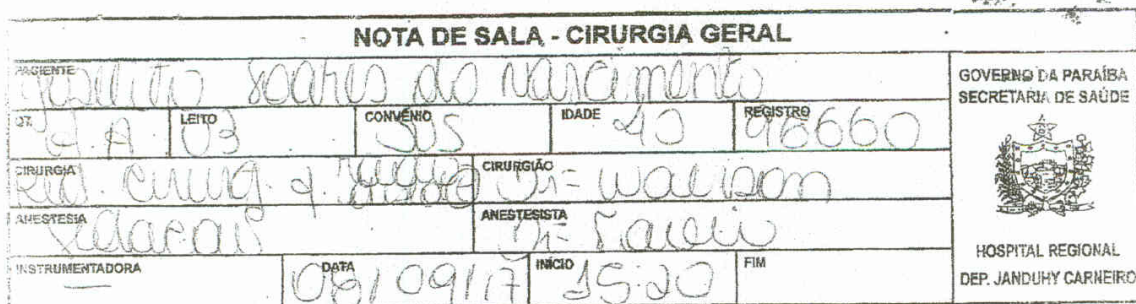 NOTA DE SALA - CIRURGIA GERAL
PACIENTE Soares do Nascimento
QT. LEITO 03 CONVÊNIO SUS IDADE 40 REGISTRO 96660
CIRURGIA Red. Cirurg. d CIRURGIÃO Dr=
ANESTESIA Sedacao ANESTESISTA Dr=
INSTRUMENTADORA — DATA 06/09/17 INÍCIO 15:20 FIM
GOVERNO DA PARAÍBA
SECRETARIA DE SAÚDE
HOSPITAL REGIONAL
DEP. JANDUHY CARNEIRO